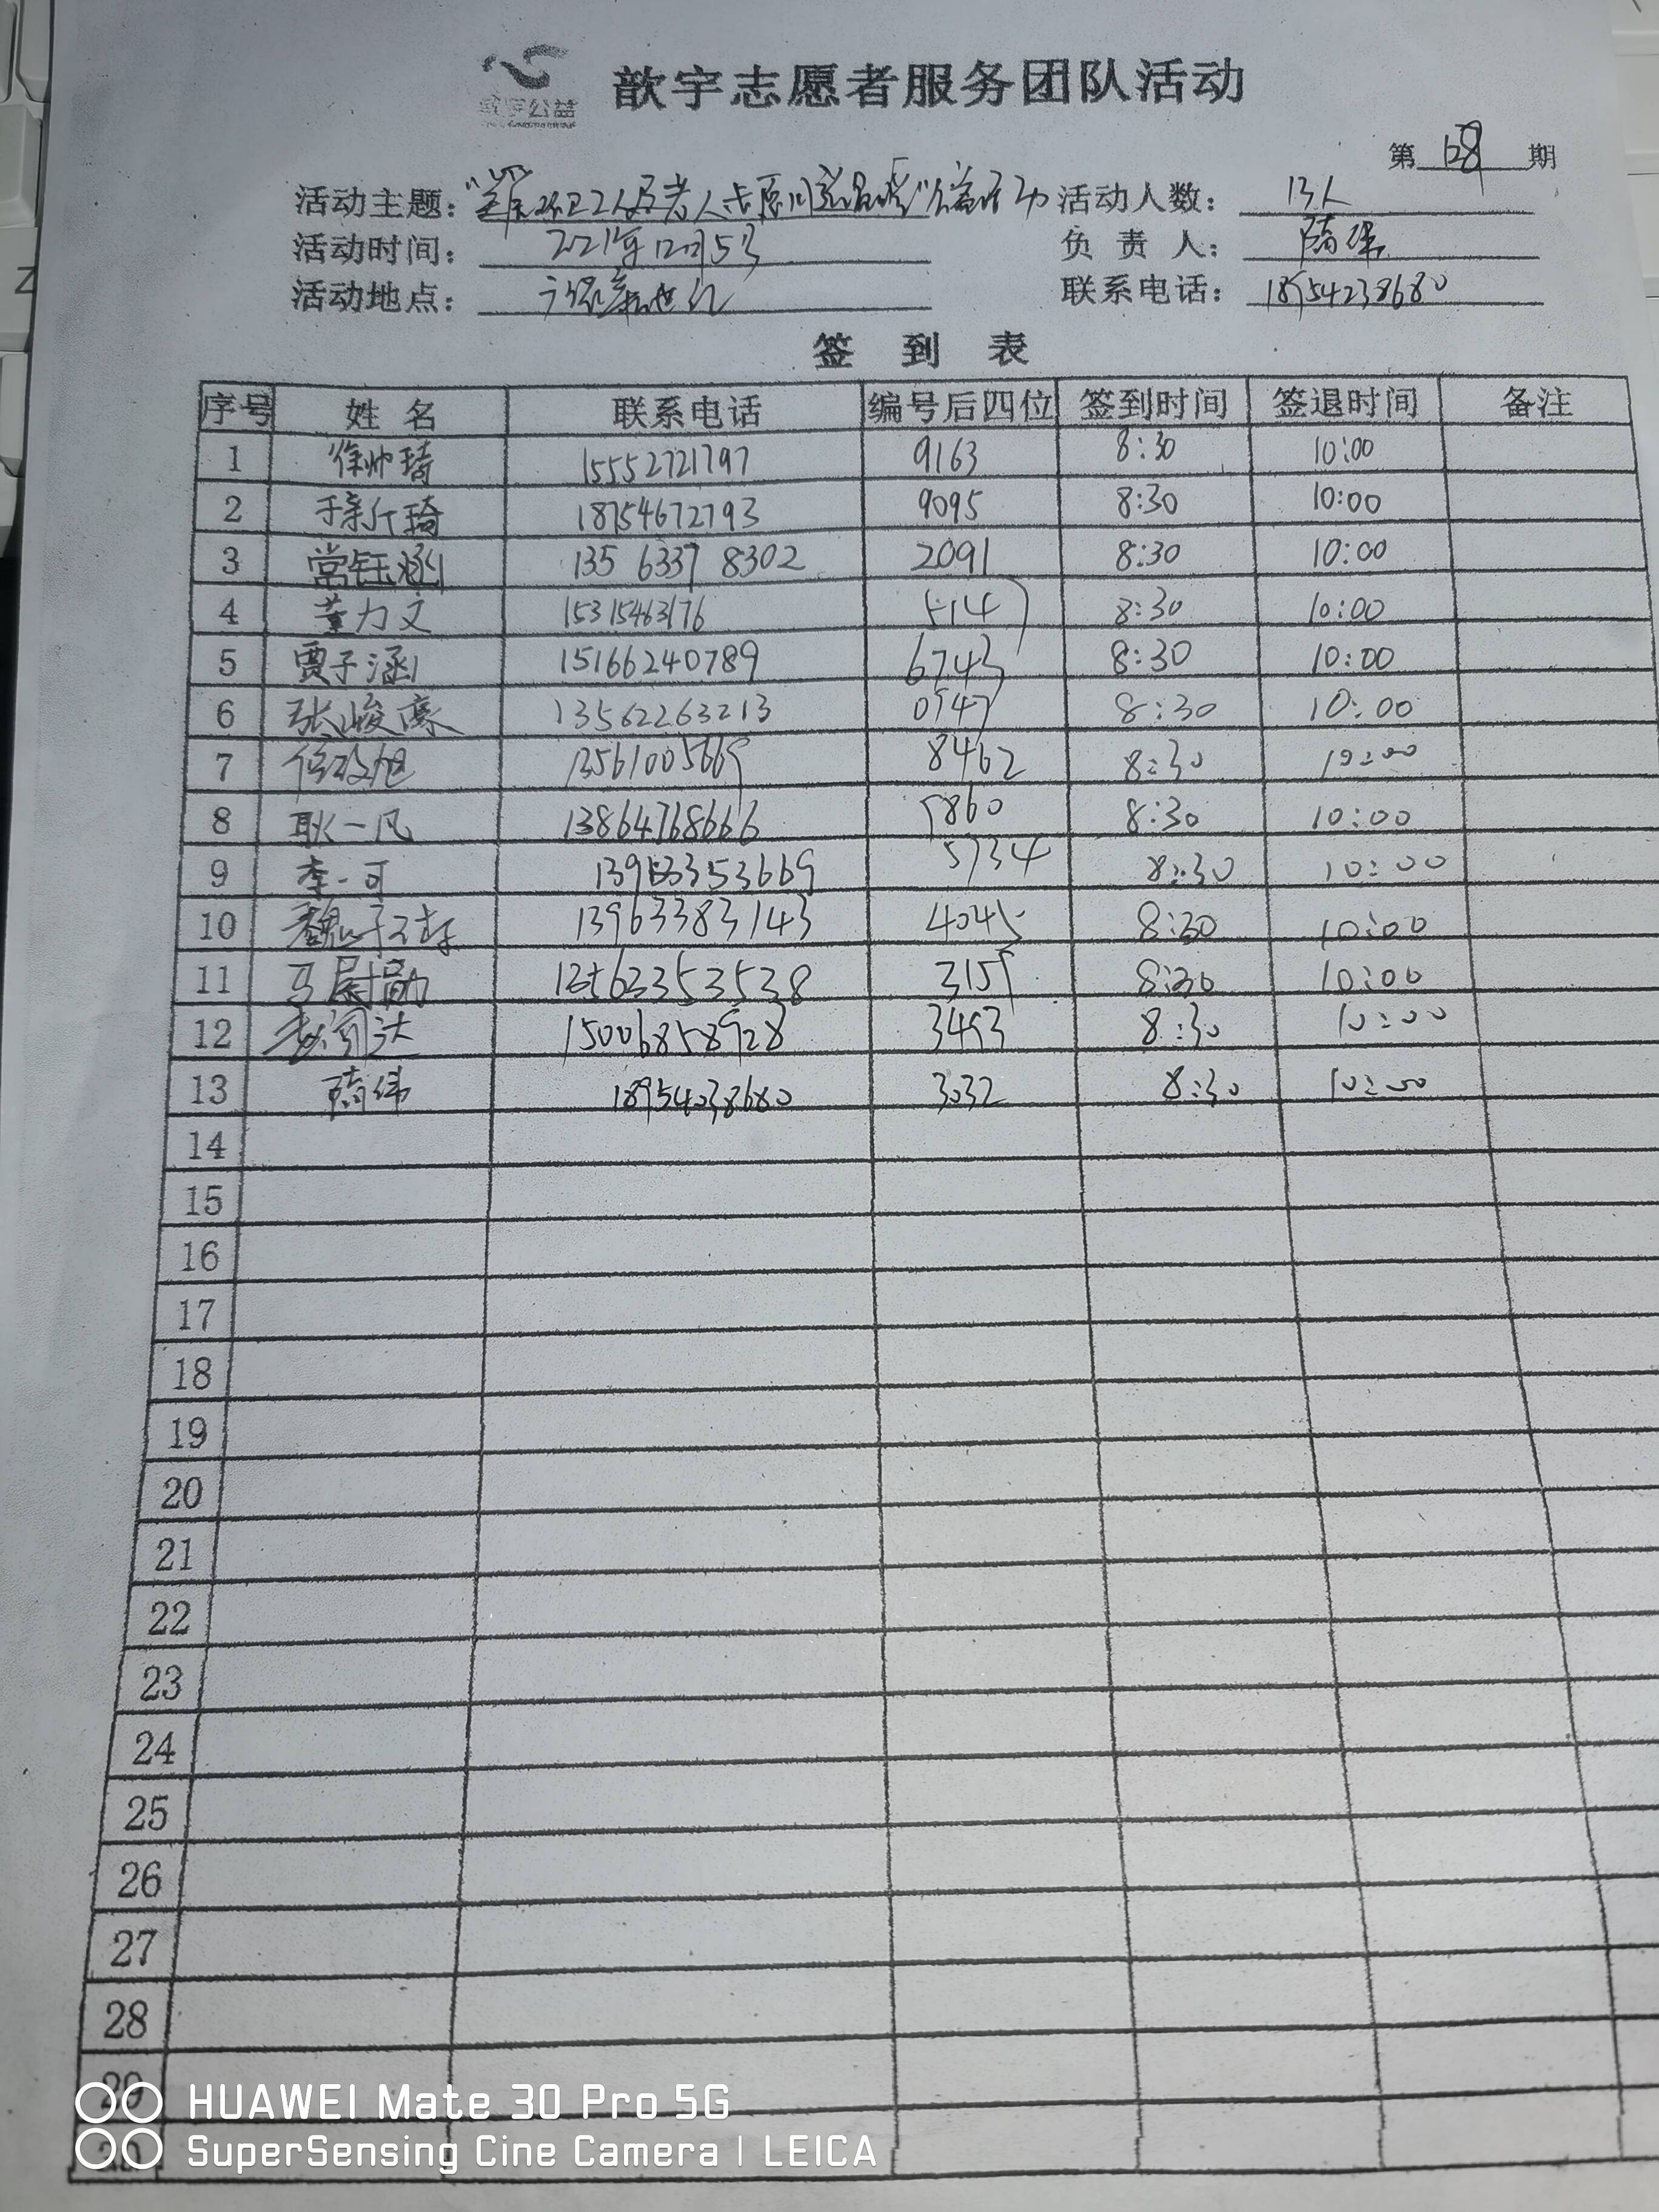 歆宇公益
歆宇志愿者服务团队活动
第 128 期
活动主题： 环卫工人 老人 活动人数： 13人
活动时间： 2021年12月5号 负 责 人： 隋伟
活动地点： 新世纪 联系电话： 18954238680
签 到 表
序号 姓 名 联系电话 编号后四位 签到时间 签退时间 备注
1 徐帅琦 15552721797 9163 8:30 10:00
2 18754672793 9095 8:30 10:00
3 常钰涵 135 6337 8302 2091 8:30 10:00
4 董力文 15315463176 8:30 10:00
5 贾子涵 15166240789 6743 8:30 10:00
6 张峻豪 13562263213 0947 8:30 10:00
7 13561005669 8462 8:30 10:00
8 耿一凡 13864768666 5860 8:30 10:00
9 李一可 5734 8:30 10:00
10 13963383143 4045 8:30 10:00
11 马尉勋 13563353538 3159 8:30 10:00
12 15006858928 3453 8:30 10:00
13 隋伟 18954038680 3032 8:30 10:00
14
15
16
17
18
19
20
21
22
23
24
25
26
27
28
29
HUAWEI Mate 30 Pro 5G
SuperSensing Cine Camera | LEICA